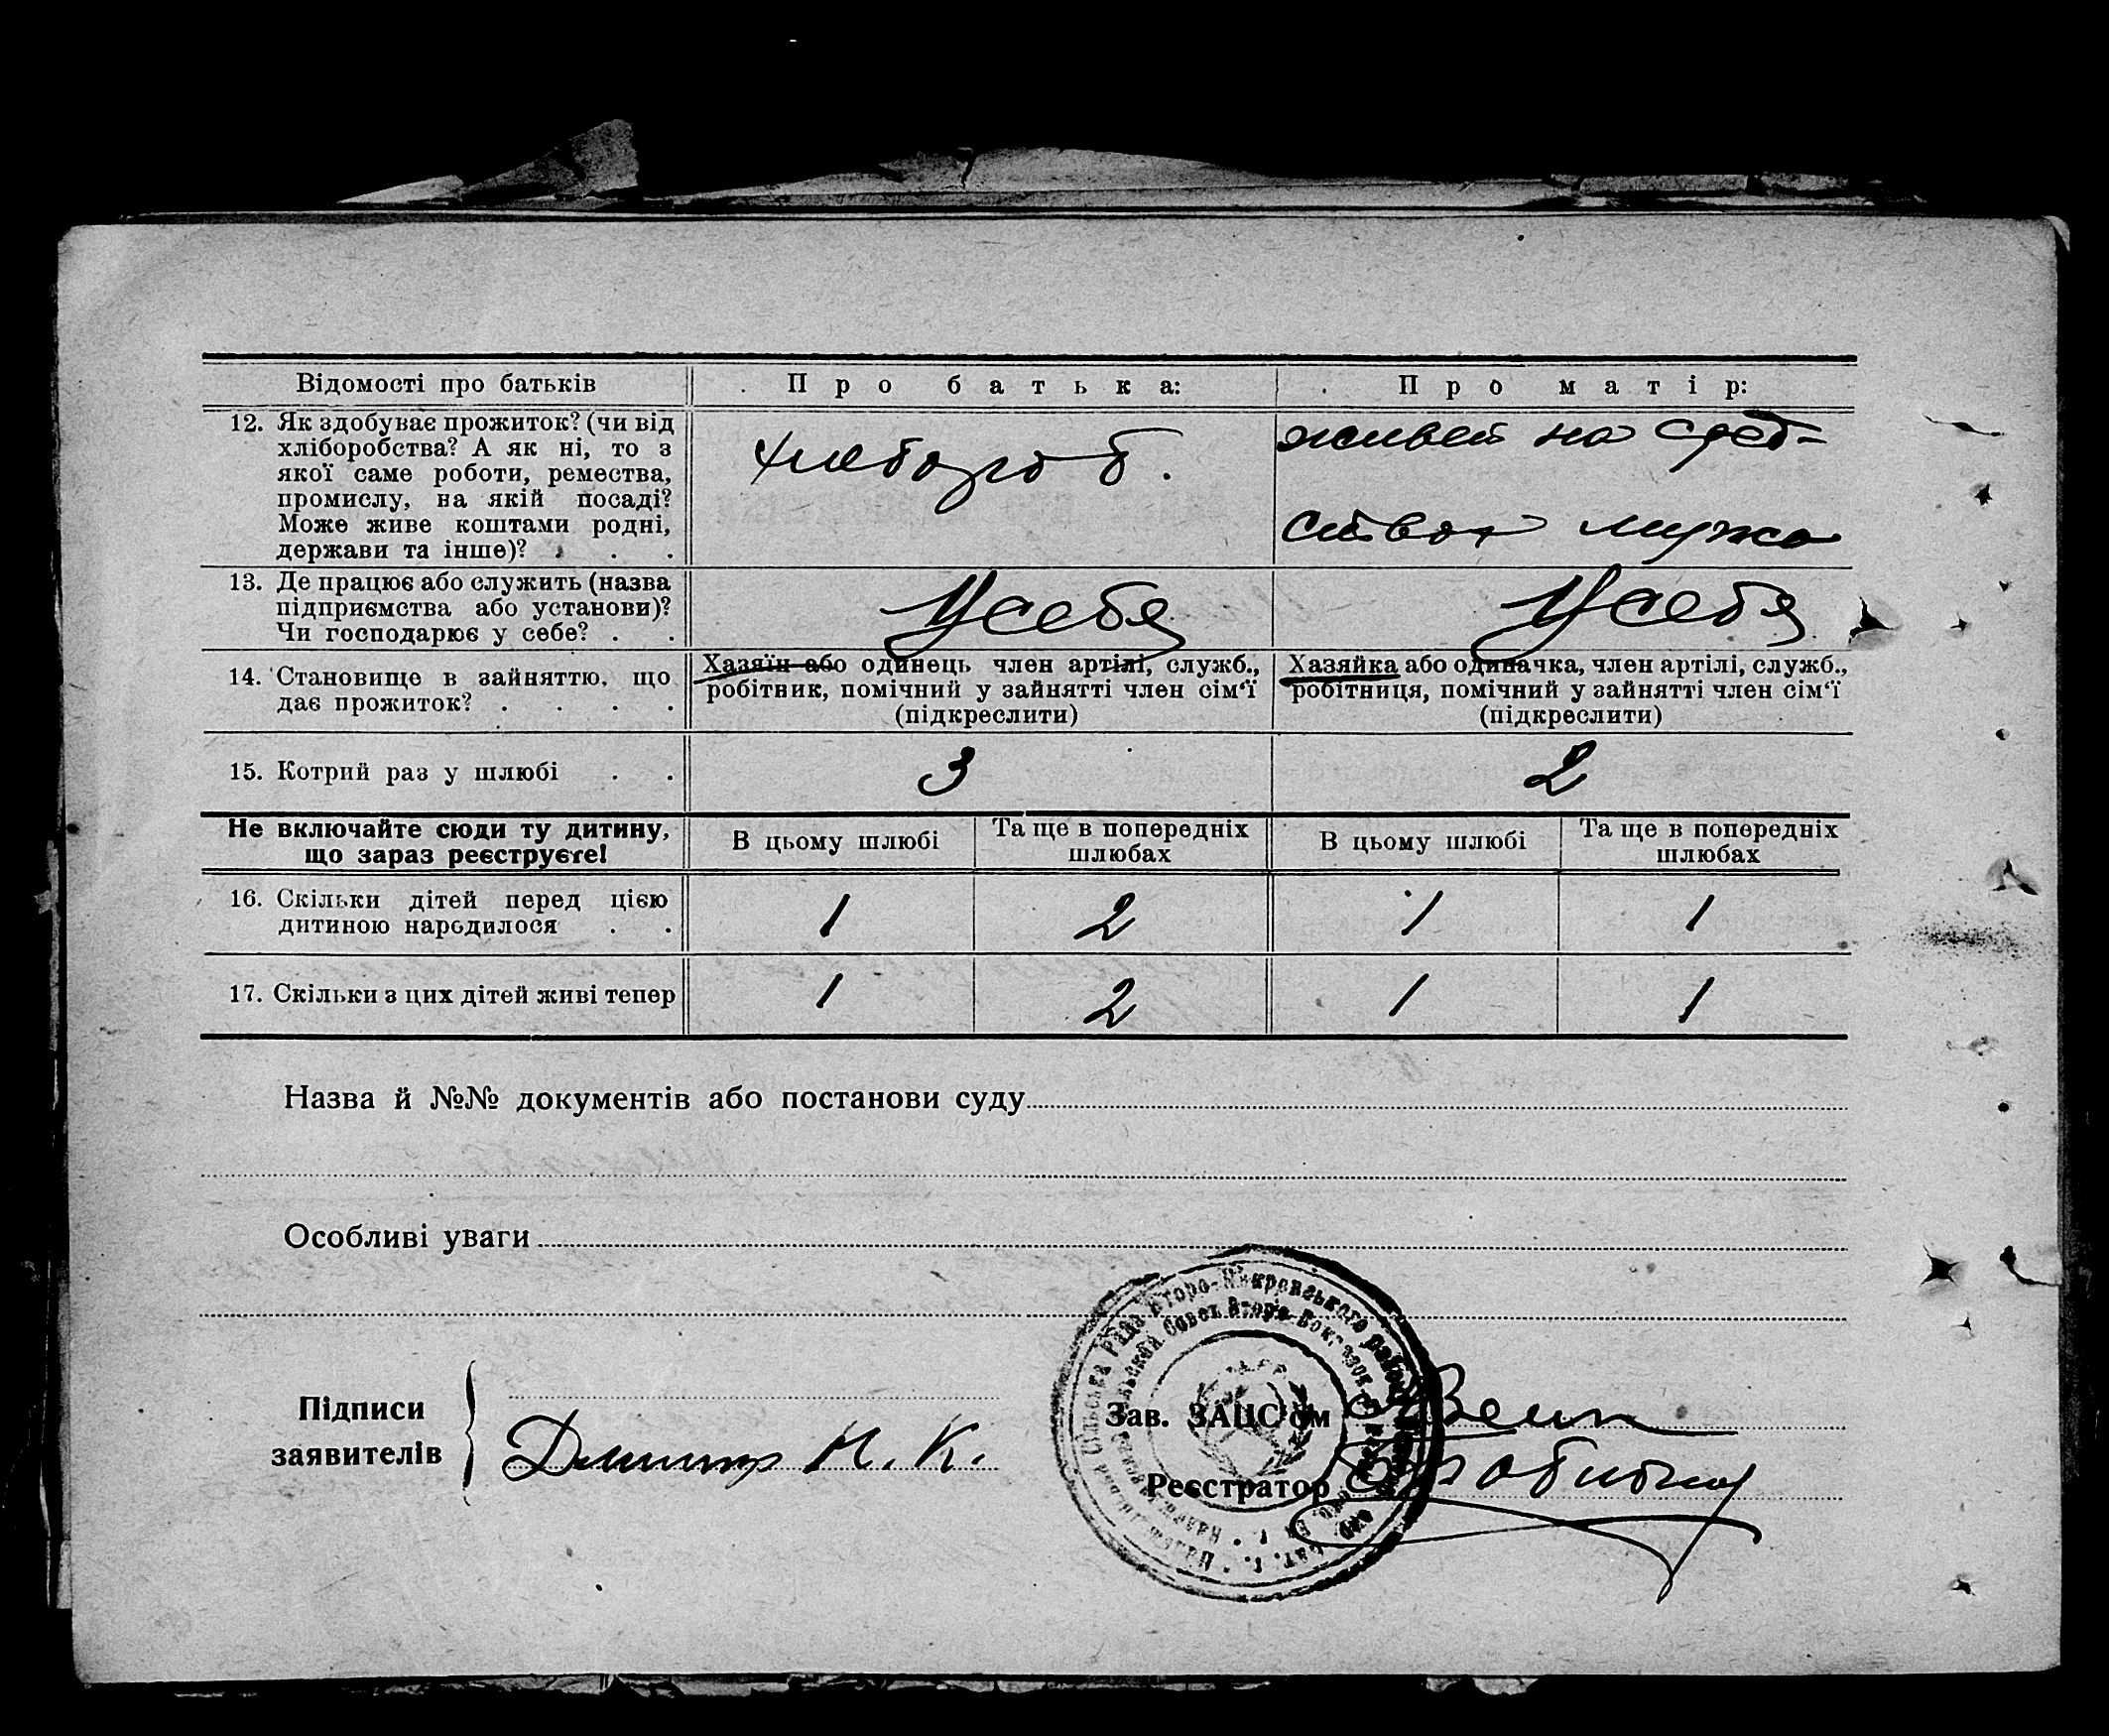 Відомості про батьків
Про батька:
Про матір:
12. Як здобуває прожиток? (чи від
хліборобства? А як ні, то з
якої саме роботи, ремества,
промислу, на якій посаді?
Може живе коштами родні,
держави та інше)? . . .
хлебороб.
живет на сред-
ствах мужа
13. Де працює або служить (назва
підприємства або установи)?
Чи господарює у себе? . .
У себя
У себя
14. Становище в зайняттю, що
дає прожиток? . . . .
Хазяїн або одинець член артілі, служб.,
робітник, помічний у зайнятті член сім'ї
(підкреслити)
Хазяйка або одиначка, член артілі, служб.,
робітниця, помічний у зайнятті член сім'ї
(підкреслити)
15. Котрий раз у шлюбі . .
3
2
Не включайте сюди ту дитину,
що зараз реєструєте!
В цьому шлюбі
Та ще в попередніх
шлюбах
В цьому шлюбі
Та ще в попередніх
шлюбах
16. Скільки дітей перед цією
дитиною народилося . .
1 2 1 1
17. Скільки з цих дітей живі тепер
1 2 1 1
Назва й №№ документів або постанови суду
Особливі уваги
Підписи
заявителів
Н. К.
Зав. ЗАЦС'ом
Реєстратор